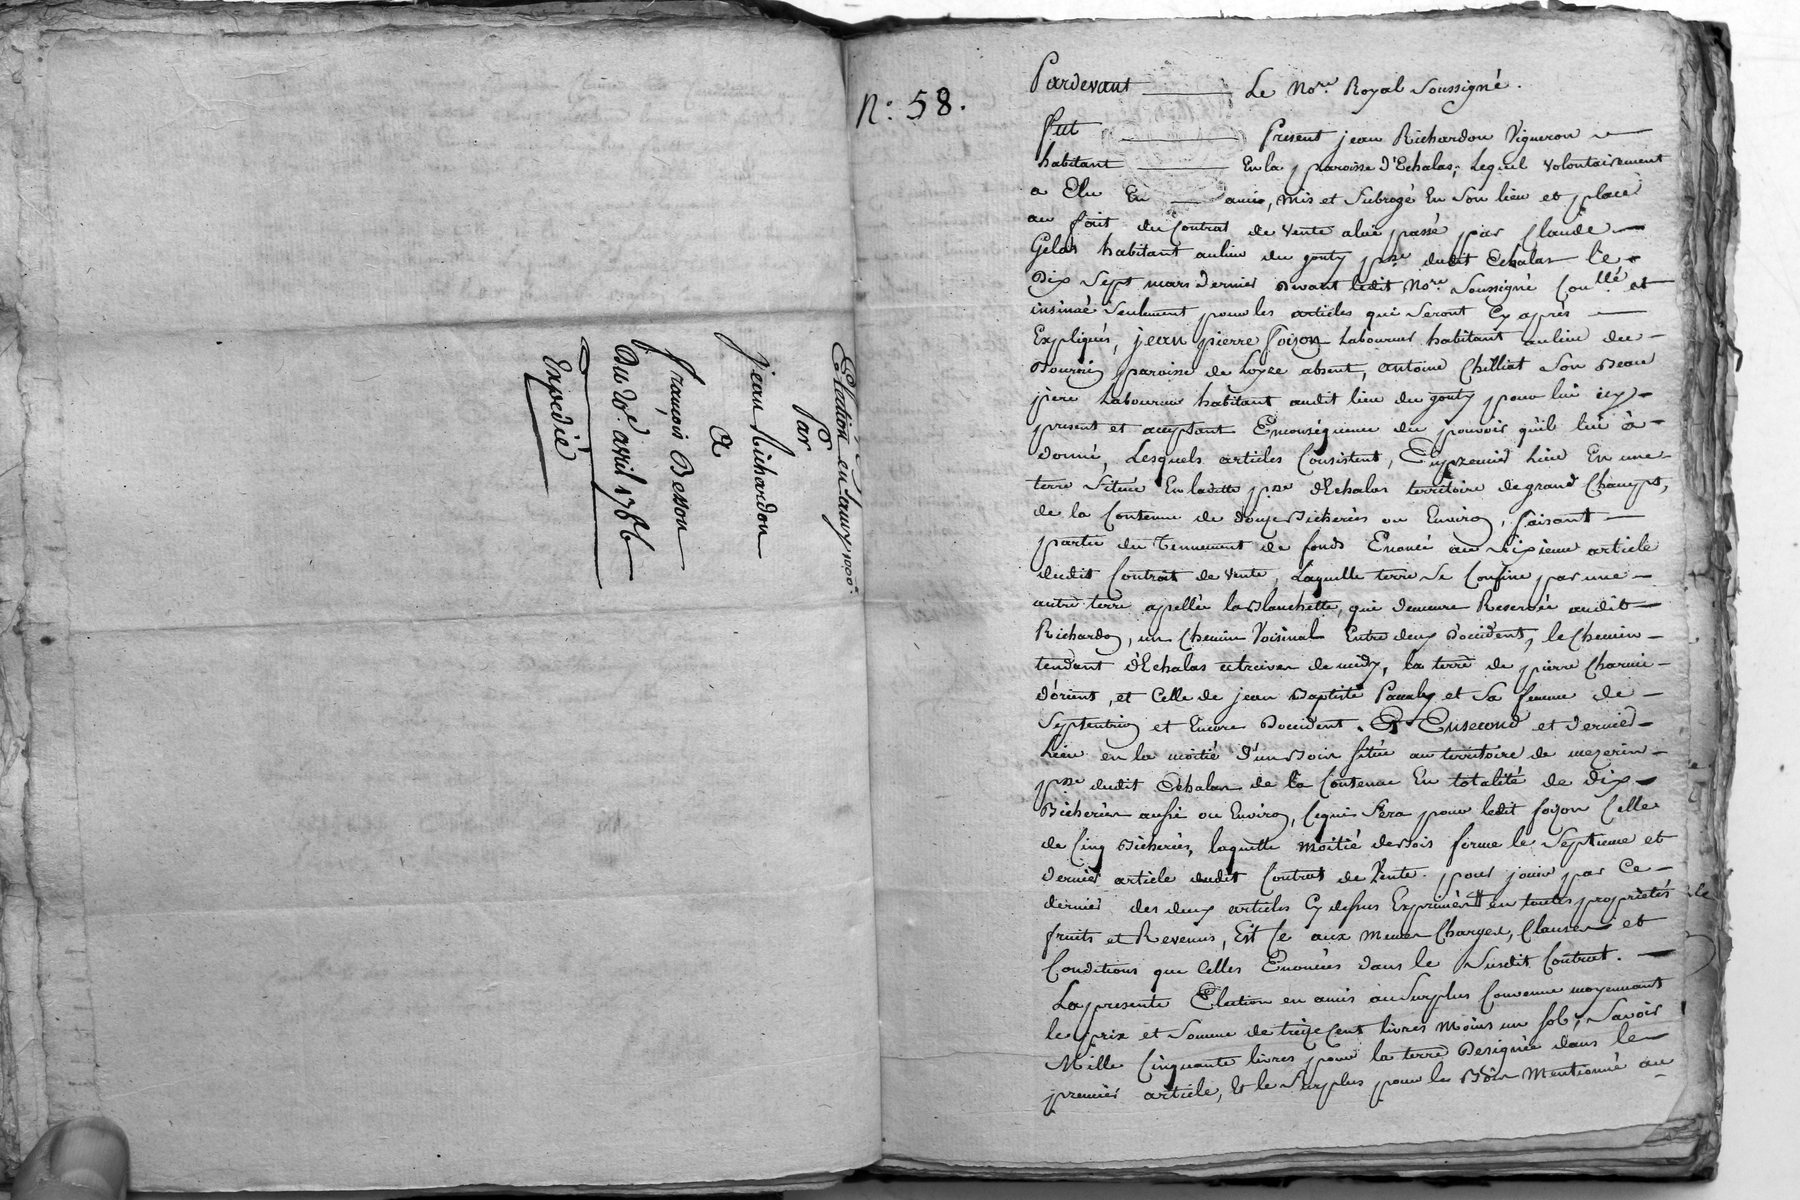 Election en amy 1000#
Par
jean Richardon
A
françois Besson
Du 20e avril 1786
Expedié
N.o 58.
Pardevant Le Nore. Royal Soussigné.
fut Present jean Richardon Vigneron
habitant En la paroisse d'Echalas, Lequel volontairement
a Elu En amis, mis et Subrogé En Son lieu et place
au fait du Contrat de vente a lui passé par Claude
Gelas habitant au lieu du gouty psse. dudit Echalas le
Dix Sept mars dernier devant ledit Nore Soussigné Conllé et
insinué Seulement pour les articles qui seront Cy après
Expliqués, jean pierre foizon Laboureur habitant au lieu du
paroisse de Loyre absent, antoine Chilliat Son Beau
pere Laboureur habitant audit lieu du gouty pour lui icy
present et acceptant En conséquence du pouvoir qu'il lui à
donné, Lesquels articles Consistent, En premier Lieu En une
terre Située En la ditte psse d'Echalas territoire de grand Champt,
de la Contenue de douze Bicherées ou Environ, faisant
partie du Tennement de fonds Enoncé au Sixieme article
dudit Contrat de vente, Laquelle terre Se Confine par une
autre terre apellée la Blanchette, qui demeure Reservée audit
Richardon, un Chemin Voisinal Entre deux d'occident, le Chemin
tendant d'Echalas a treives de midy, la terre de pierre Charmi
d'orient, et Celle de jean Baptiste et Sa femme de
Septentrion et Encore d'occident. Et En second et dernier
Lieu en la moitié d'un Bois Situé au territoire de mezerin
psse dudit Echalas de la Contenue En totalité de dix
Bicherées aussi ou Environ, Ce qui Sera pour ledit foizon Celle
de Cinq Bicherées, laquelle moitié de Bois forme le Septieme et
dernier article dudit Contrat de Vente. pour jouir par Ce
dernier des deux articles Cy dessus Exprimés en toutes proprietés
fruits et Revenus, Est Ce aux memes Charges, Clauses et
Conditions que Celles Enoncées dans le Susdit Contrat.
La presente Election en amis au Surplus Convenue moyennant
le prix et Somme de treize Cent livres moins un Sol, Savoir
Mille Cinquante livres pour la terre Designée dans le
premier article, Et le Surplus pour le Bois Mentionné au